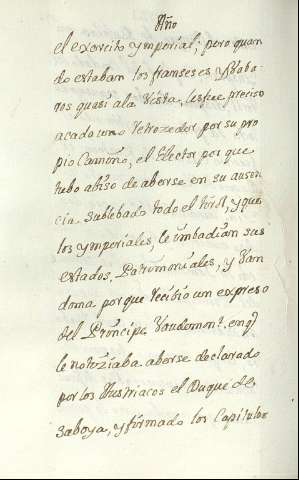 Año
el exercito ymperial; pero quan
do estaban los franseses y Baba
ros quasi ala Vista, les fue preciso
acada uno retrozeder por su pro
pio Camino, el Elector por que
tubo abiso de aberse en su ausen
cia sublebado todo el tirol, y que
los ymperiales, le imbadian sus
estados, Patrimoniales, y Van
doma porque recibio un expreso
del Principe Vaudemont, en q
le notiziaba aberse declarado
por los Austriacos el Duque de
Saboya, y firmado los Capitulos